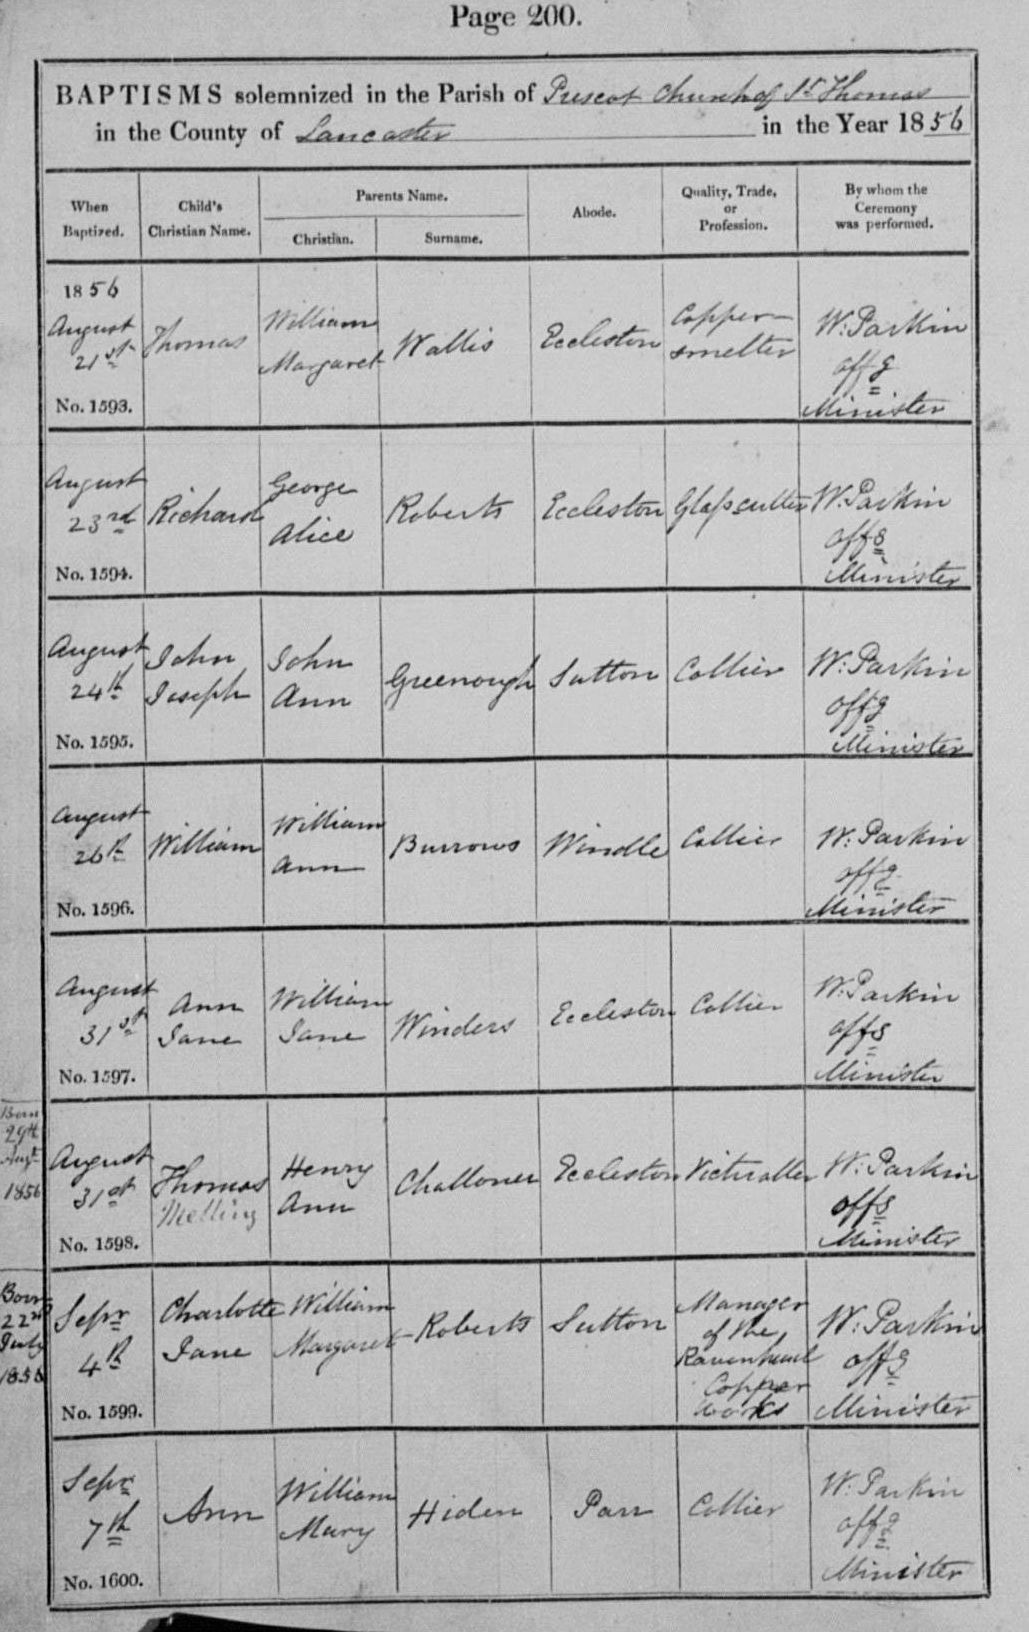 Page 200.
BAPTISMS solemnized in the Parish of Prescot Church of St Thomas
in the County of Lancaster in the Year 1856
When Baptized.
Child's Christian Name.
Parents Name.
Christian.
Surname.
Abode.
Quality, Trade, or Profession.
By whom the Ceremony was performed.
1856
August
21st
No. 1593.
Thomas
William
Margaret
Wallis
Eccleston
Copper
smelter
W: Parkin
offg
Minister
August
23rd
No. 1594.
Richard
George
Alice
Roberts
Eccleston
Glasscutter
W. Parkin
offg
Minister
August
24th
No. 1595.
John
Joseph
John
Ann
Greenough
Sutton
Collier
W: Parkin
offg
Minister
August
26th
No. 1596.
William
William
Ann
Burrows
Windle
Collier
W: Parkin
offg
Minister
August
31st
No. 1597.
Ann
Jane
William
Jane
Winders
Eccleston
Collier
W: Parkin
offg
Minister
Born
29th
Augt
1856
August
31st
No. 1598.
Thomas
Melling
Henry
Ann
Challoner
Eccleston
Victualler
W: Parkin
offg
Minister
Born
22nd
July
1856
Sepr
4th
No. 1599.
Charlotte
Jane
William
Margaret
Roberts
Sutton
Manager
of the
Ravenhead
Copper
Works
W: Parkin
offg
Minister
Sepr
7th
No. 1600.
Ann
William
Mary
Hiden
Parr
Collier
W: Parkin
offg
Minister